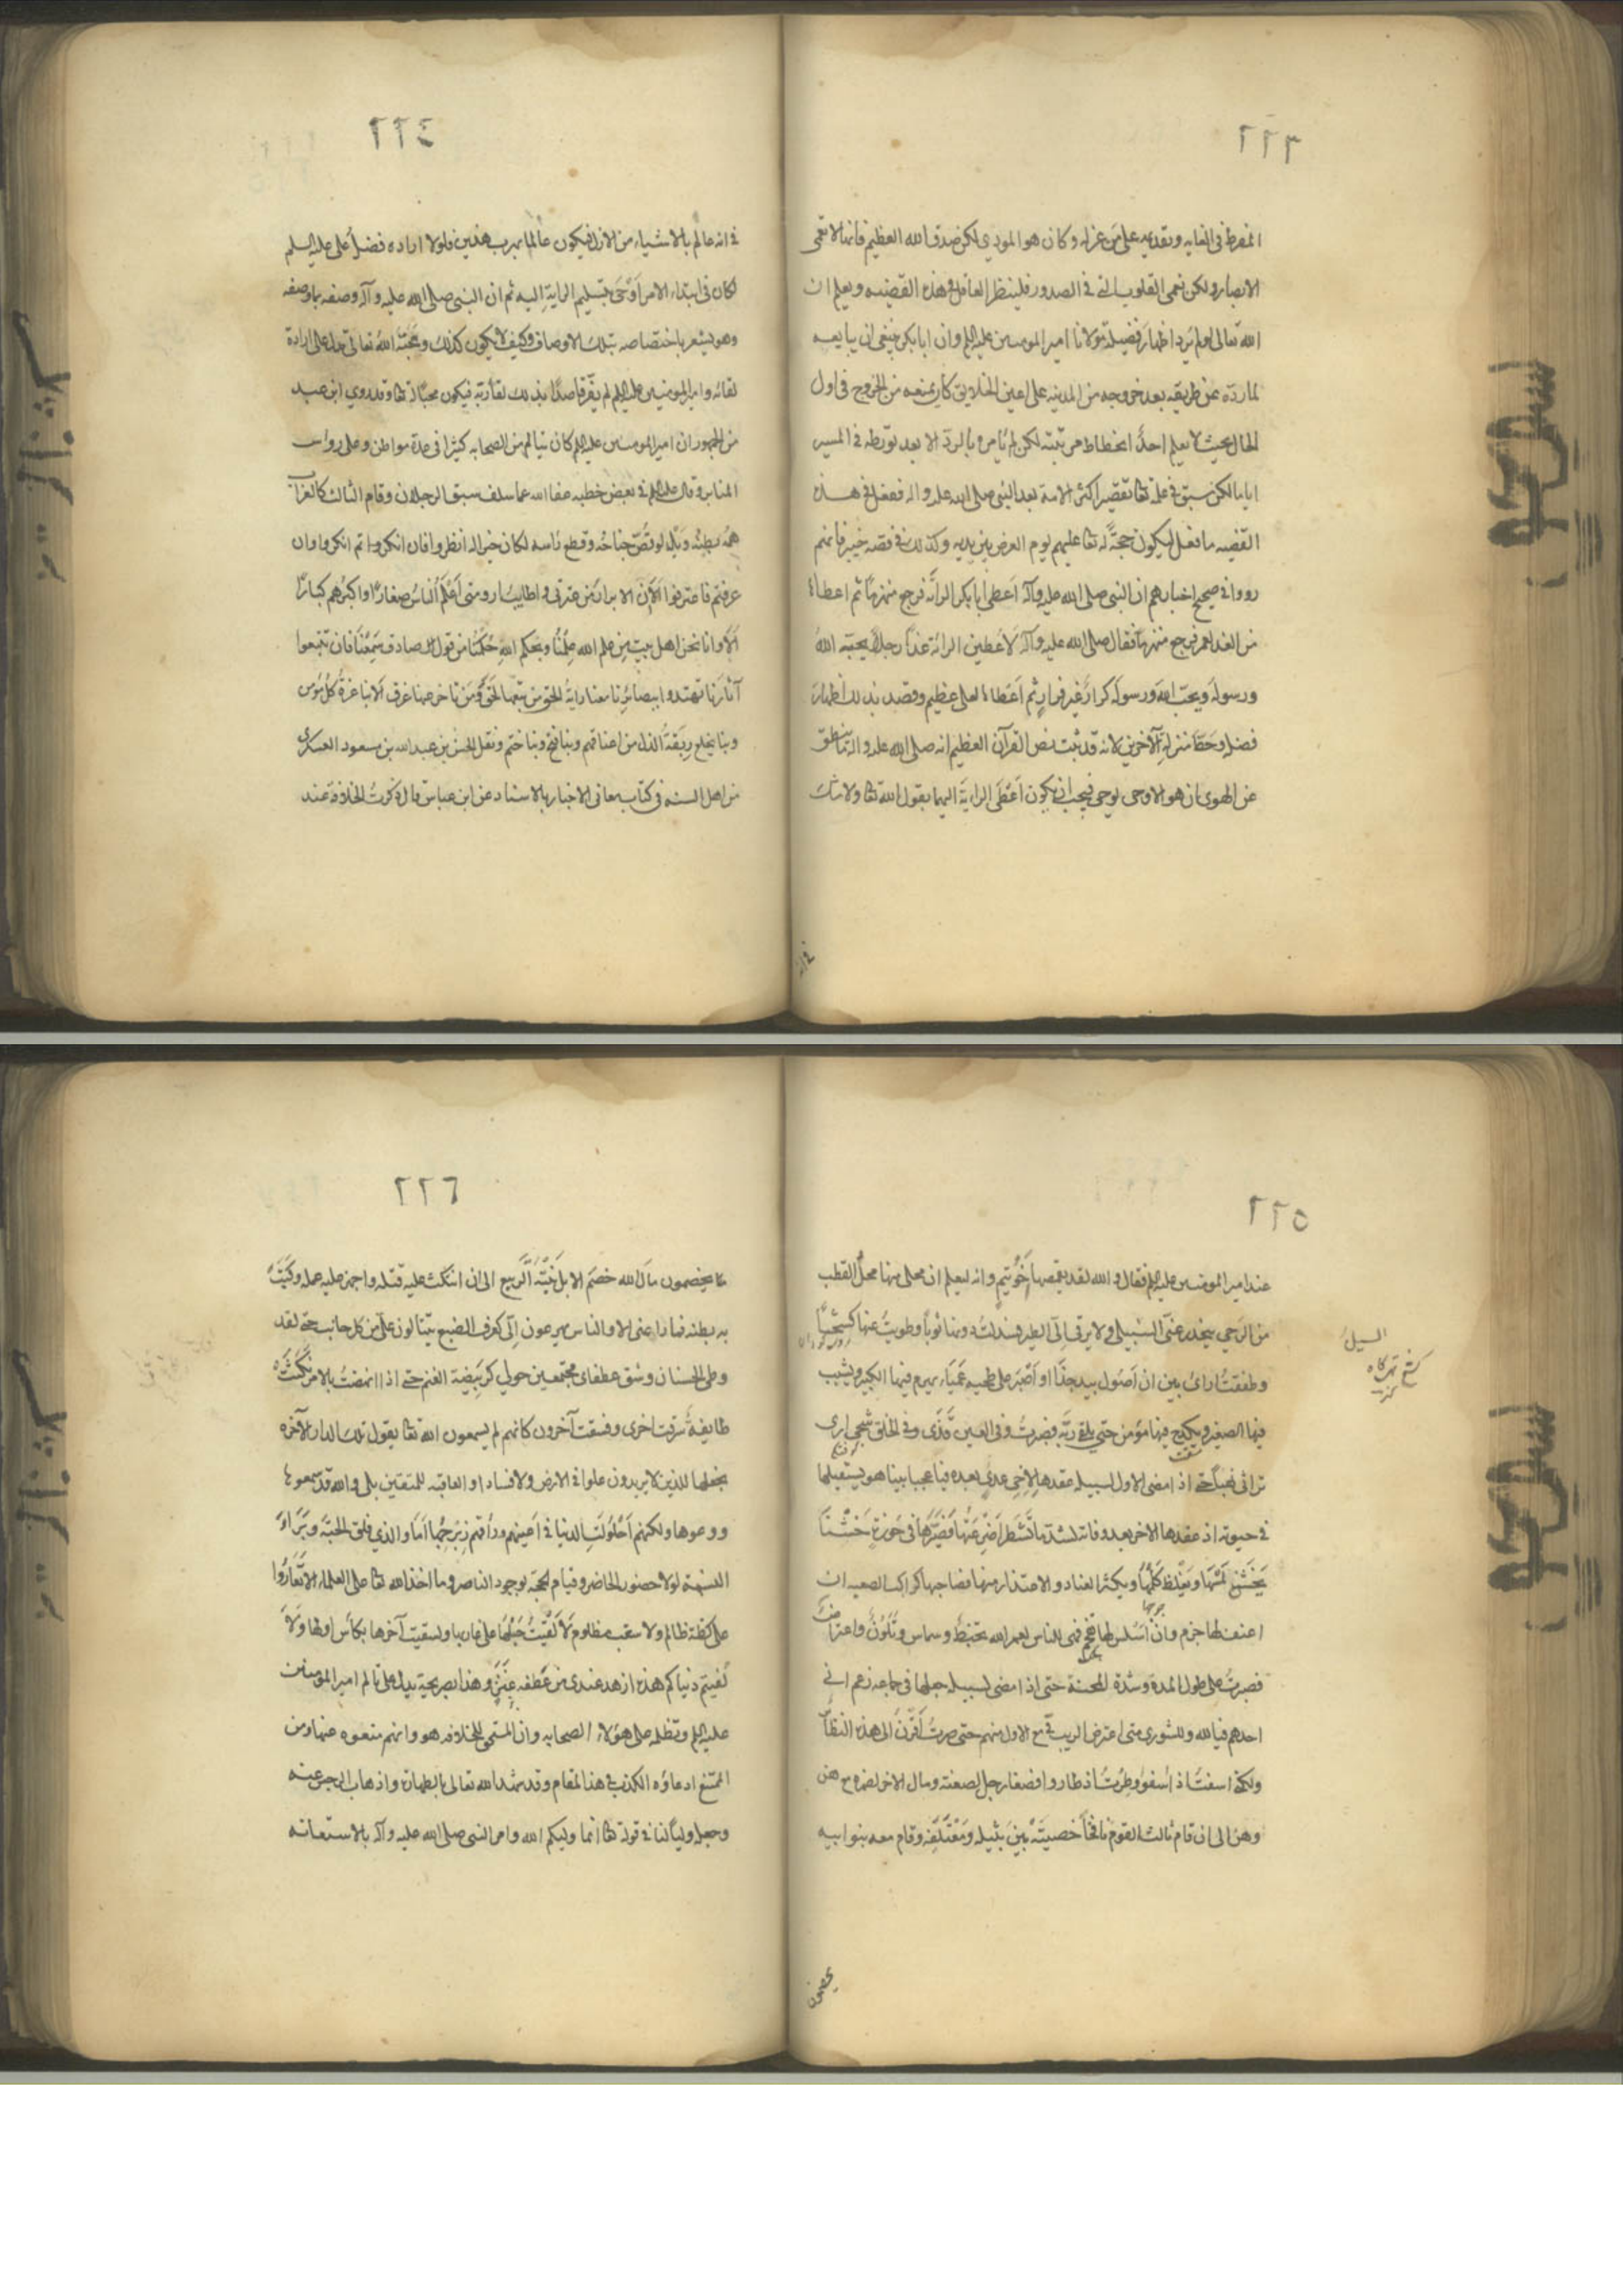 ٢٢٣
المفرط في الغاية وتقديمه على من عزله وكان هو المودي لكن صدق الله العظيم فانها لا تعمى
الابصار ولكن تعمى القلوب التي في الصدور فلينظر العاقل في هذه القضيه ويعلم ان
الله تعالى لو لم يرد اظهار فضيلة مولانا امير المومنين عليه السلم وان ابا بكر ينبغي ان يبايعه
لما رده عن طريقه بعد خروجه من المدينه على اعين الخلايق كان يمنعه من الخروج في اول
الحال بحيث لا يعلم احدٌ انحطاط مرتبته لكن لم يأمره بالردّ الا بعد تورّطه في المسير
اياما لكن سبق في علمه تعا تقصير اكثر الامة بعد النبي صلى الله عليه واله ففعل في هذه
القضيه ما فعل ليكون حجةً له تعا عليهم يوم العرض بين يديه وكذلك في قصه خيبر فانهم
رووا في صحيح اخبارهم ان النبي صلى الله عليه وآله اعطى ابا بكر الراية فرجع منهزمًا ثم اعطاها
من الغد لعمر فرجع منهزمًا فقال صلى الله عليه وآله لاعطين الراية غدًا رجلًا يحبه الله
ورسوله ويحب الله ورسوله كرار غير فرار ثم اعطاها لعلي عظيم وقصد بذلك اظهار
فضله وحط منزلة الآخرين لانه قد ثبت بنص القرآن العظيم انه صلى الله عليه واله ما ينطق
عن الهوى ان هو الا وحى يوحى فيجب ان يكون اعطى الراية اليهما بقول الله تعا ولا شك
في انه
٢٢٤
في انه عالم بالاشياء من الازل فيكون عالما بهرب هذين فلولا اراده فضل علي عليه السلم
لكان في ابتداء الامر اوحى بتسليم الراية اليه ثم ان النبي صلى الله عليه وآله وصفه بما وصفه
وهو يشعر باختصاصه بتلك الاوصاف وكيف لا يكون كذلك ومحبة الله تعالى تدل على ارادة
لقائه وامير المومنين عليه السلم لم يفر قاصدًا بذلك لقاء ربه فيكون محبًا له تعا وقد روى ابن عبد
من الجمهور ان امير المومنين عليه السلم كان يتالم من الصحابه كثيرا في عدة مواطن وعلى رؤس
المنابر وقال عليه السلم في بعض خطبه عفا الله عما سلف سبق الرجلان وقام الثالث كالغراب
همه بطنه ويله لو قص جناحه وقطع رأسه لكان خيرا له انظروا فان انكرتم انكروا وان
عرفتم فاعترفوا الا ان الابرار من عترتي واطايب ارومتي احلم الناس صغارًا واكبرهم كبارًا
الا وانا نحن اهل بيت من علم الله علمنا وبحكم الله حكمنا من قول صادق سمعنا فان تتبعوا
آثارنا تهتدوا ببصائرنا معنا راية الحق من تبعها لحق ومن تاخر عنها غرق الا بنا عزة كل مؤمن
وبنا تخلع ربقة الذل من اعناقهم وبنا فتح وبنا ختم ونقل الحسن بن عبد الله بن مسعود العسكري
من اهل السنه في كتاب معاني الاخبار بالاسناد عن ابن عباس قال ذكرت الخلافة عند
٢٢٥
عند امير المومنين عليه السلم فقال والله لقد تقمصها اخو تيم وانه ليعلم ان محلى منها محل القطب
من الرحي ينحدر عني السيل ولا يرقى الى الطير فسدلت دونها ثوبًا وطويت عنها كشحًا
وطفقت ارتاي بين ان اصول بيد جذا او اصبر على طخيه عمياء يهرم فيها الكبير ويشيب
فيها الصغير ويكدح فيها مؤمن حتى يلقى ربه فصبرت وفي العين قذى وفي الحلق شجى ارى
تراثي نهبًا حتى اذا مضى الاول لسبيله عقدها لاخي عدي بعده فيا عجبا بينا هو يستقيلها
في حيوته اذ عقدها لاخر بعد وفاته لشد ما تشطرا ضرعيها فصيرها في حوزة خشنا
يخشن مسها ويغلظ كلمها ويكثر العثار والاعتذار منها فصاحبها كراكب الصعبه ان
اعنف لها حزم وان اسلس لها تقحم فمنى الناس لعمر الله بخبط وشماس وتلون واعتراض
فصبرت على طول المدة وشدة المحنة حتى اذا مضى لسبيله جعلها في جماعه زعم اني
احدهم فيا لله وللشورى متى اعترض الريب في مع الاول منهم حتى صرت اقرن الى هذه النظائر
ولكني اسففت اذ اسفوا وطرت اذ طاروا فصغا رجل لضغنه ومال الاخر لصهره مع هن
وهن الى ان قام ثالث القوم نافجًا حضنيه بين نثيله ومعتلفه وقام معه بنو ابيه
السيل
يخضمون
٢٢٦
يخضمون مال الله خضم الابل نبتة الربيع الى ان انتكث عليه فتله واجهز عليه عمله وكبت
به بطنه فما راعني الا والناس يهرعون الي كعرف الضبع ينثالون علي من كل جانب حتى لقد
وطئ الحسنان وشق عطفاي مجتمعين حولي كربيضة الغنم حتى اذا نهضت بالامر نكثت
طايفة ومرقت اخرى وفسقت آخرون كانهم لم يسمعون الله تعا يقول تلك الدار الآخره
نجعلها للذين لا يريدون علوا في الارض ولا فسادا والعاقبه للمتقين بلى والله قد سمعوها
ووعوها ولكنهم احلولت الدنيا في اعينهم وراقهم زبرجها اما والذي فلق الحبة وبرأ
النسمة لولا حضور الحاضر وقيام الحجة بوجود الناصر وما اخذ الله تعا على العلماء الا يقاروا
على كظة ظالم ولا سغب مظلوم لالقيت حبلها على غاربها ولسقيت آخرها بكأس اولها ولا
لفيتم دنياكم هذه ازهد عندي من عطفه عنز وهذا يصريحه يدل على تالم امير المومنين
عليه السلم وتظلمه على هؤلاء الصحابه وان المستحق للخلافه هو وانهم منعوه عنها ومن
الممتنع ادعاؤه الكذب في هذا المقام وقد شهد الله تعالى بالطهارة واذهاب الرجس عنه
وجعله وليًا لنا في قوله تعا انما وليكم الله وامر النبي صلى الله عليه وآله بالاستعانه